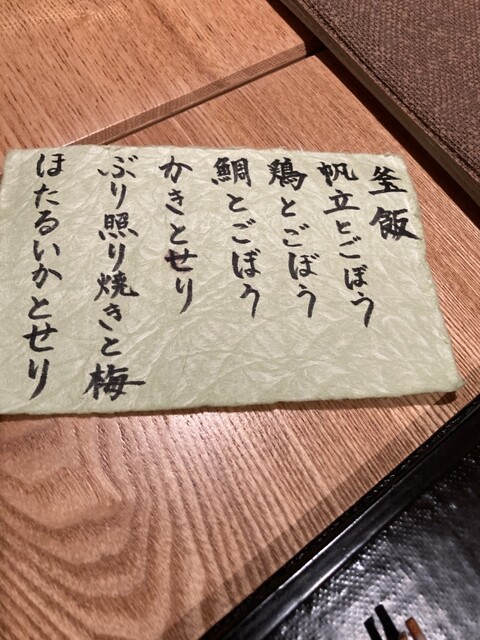 釜飯
帆立とごぼう
鶏とごぼう
鯛とごぼう
かきとせり
ぶり照り焼きと梅
ほたるいかとせり